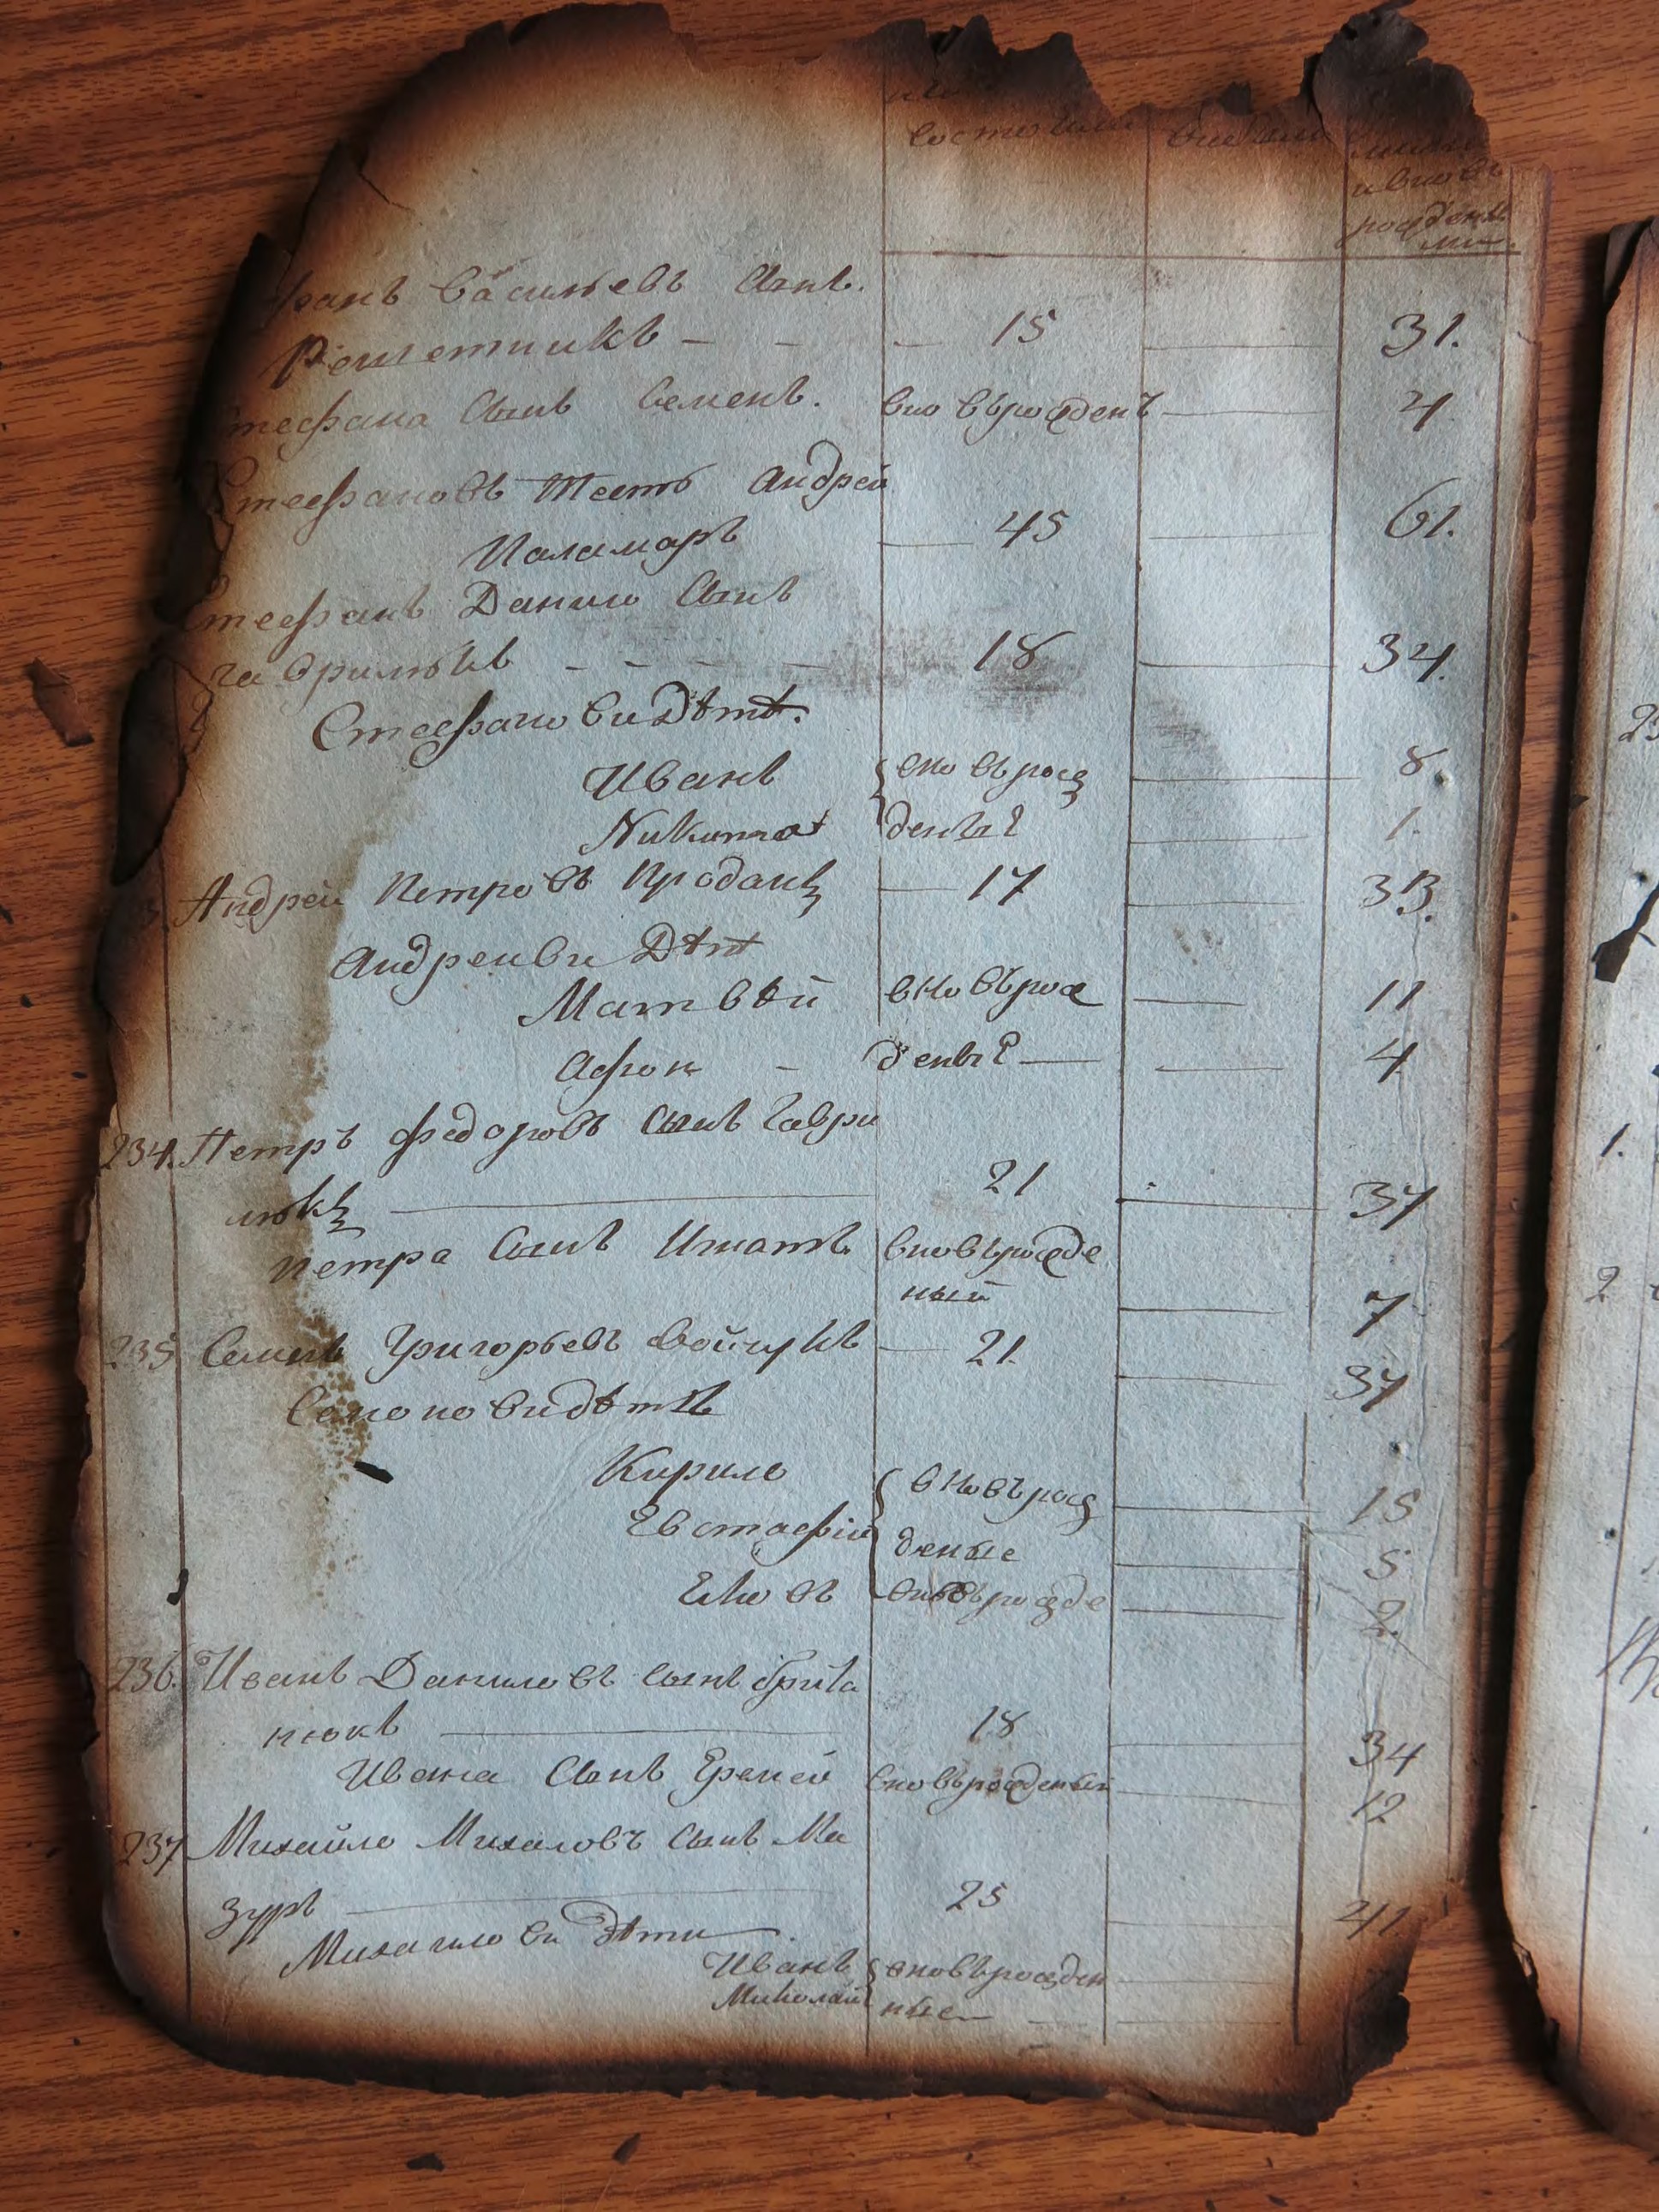 состоял
и вновь
рожденн
ми
фанъ Васильевъ сынъ
Решетникъ — — — 15 — 31.
тефана сынъ Семенъ. вновьрожденъ — 4
Стефановъ тесть Андрей
Паламаръ — 45 — 61.
Стефанъ Данило сынъ
гаврилюкъ — — — — 18 — 34.
Стефанови Дѣтѣ.
Иванъ вновьрож — 8.
Никита деныЕ — 1.
Андрей Петровъ Проданъ — 17 — 33.
Андреиви Дѣтѣ
Матвѣй вновърож — 11
Афон — деныЕ — 4
234. Петръ Федоровъ сынъ Гаври
люкъ — 21 — 37
петра сынъ Игнатъ вновьрожде
ный — 7
235 Семенъ Григорьевъ Войчукъ — 21. — 37
видѣтѣ
Кирило вновърож — 15
Евстафій деные — 5
Яковъ вновьрожде — 2.
236. Иванъ Даниловъ сынъ
нюкъ — 18 — 34
Ивана сынъ Еремей вновьрожденый — 12
237 Михайло Михаловъ сынъ Ма
зуръ — 25 — 41
Михаилови Дѣти
Иванъ вновьрожден
Миколай ные —
1.
2